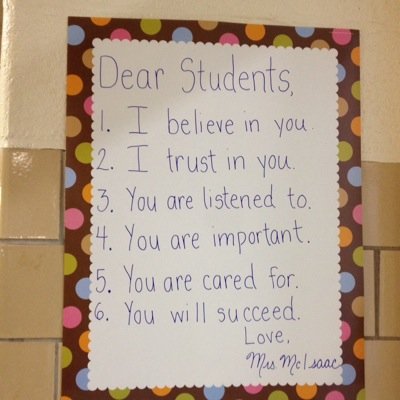 Dear Students,
1. I believe in you.
2. I trust in you.
3. You are listened to.
4. You are important.
5. You are cared for.
6. You will succeed.
Love,
Mrs. McIsaac